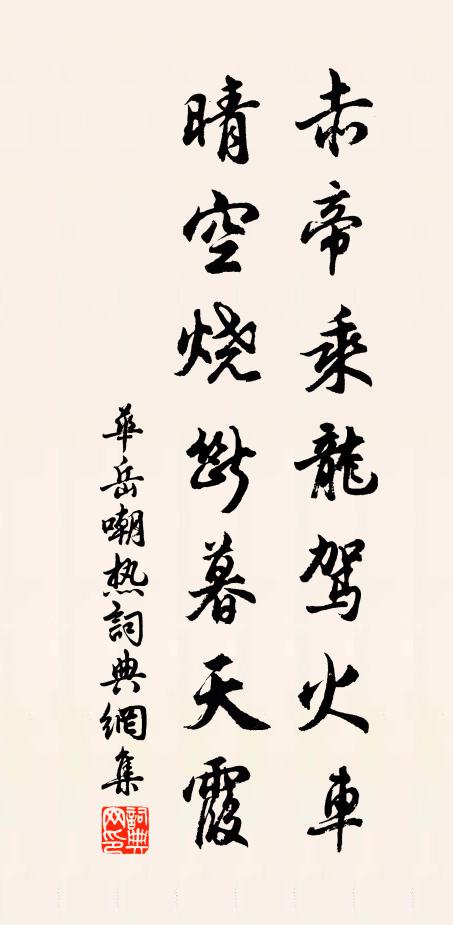 赤帝乘龍駕火車
晴空燒斷暮天霞
華岳嘲热詞典網集
詞典网印